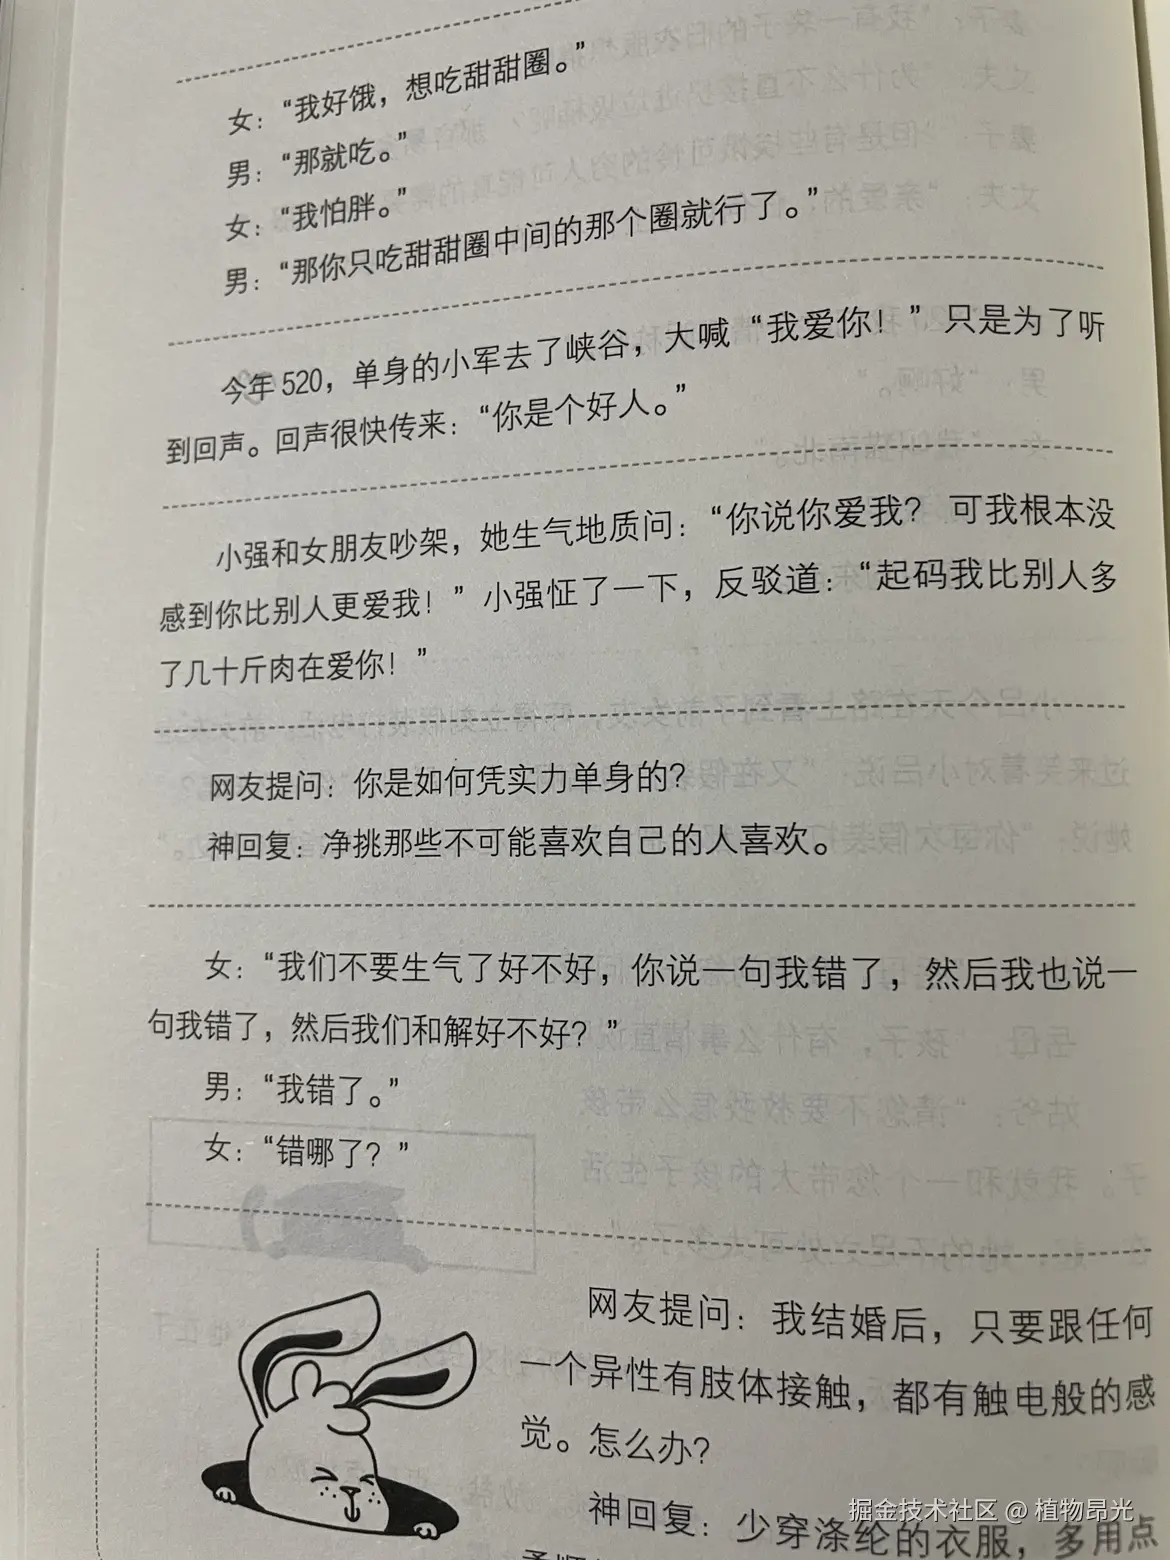 女：“我好饿，想吃甜甜圈。”
男：“那就吃。”
女：“我怕胖。”
男：“那你只吃甜甜圈中间的那个圈就行了。”
今年520，单身的小军去了峡谷，大喊“我爱你！”只是为了听
到回声。回声很快传来：“你是个好人。”
小强和女朋友吵架，她生气地质问：“你说你爱我？可我根本没
感到你比别人更爱我！”小强怔了一下，反驳道：“起码我比别人多
了几十斤肉在爱你！”
网友提问：你是如何凭实力单身的？
神回复：净挑那些不可能喜欢自己的人喜欢。
女：“我们不要生气了好不好，你说一句我错了，然后我也说一
句我错了，然后我们和解好不好？”
男：“我错了。”
女：“错哪了？”
网友提问：我结婚后，只要跟任何
一个异性有肢体接触，都有触电般的感
觉。怎么办？
神回复：少穿涤纶的衣服，多用点
掘金技术社区 @ 植物昂光